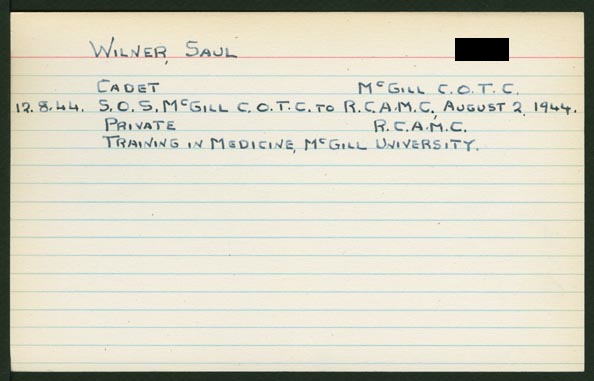 WILNER, SAUL
CADET McGILL C.O.T.C.
12.8.44. S.O.S. McGILL C.O.T.C. TO R.C.A.M.C., AUGUST 2, 1944.
PRIVATE R.C.A.M.C.
TRAINING IN MEDICINE, McGILL UNIVERSITY.